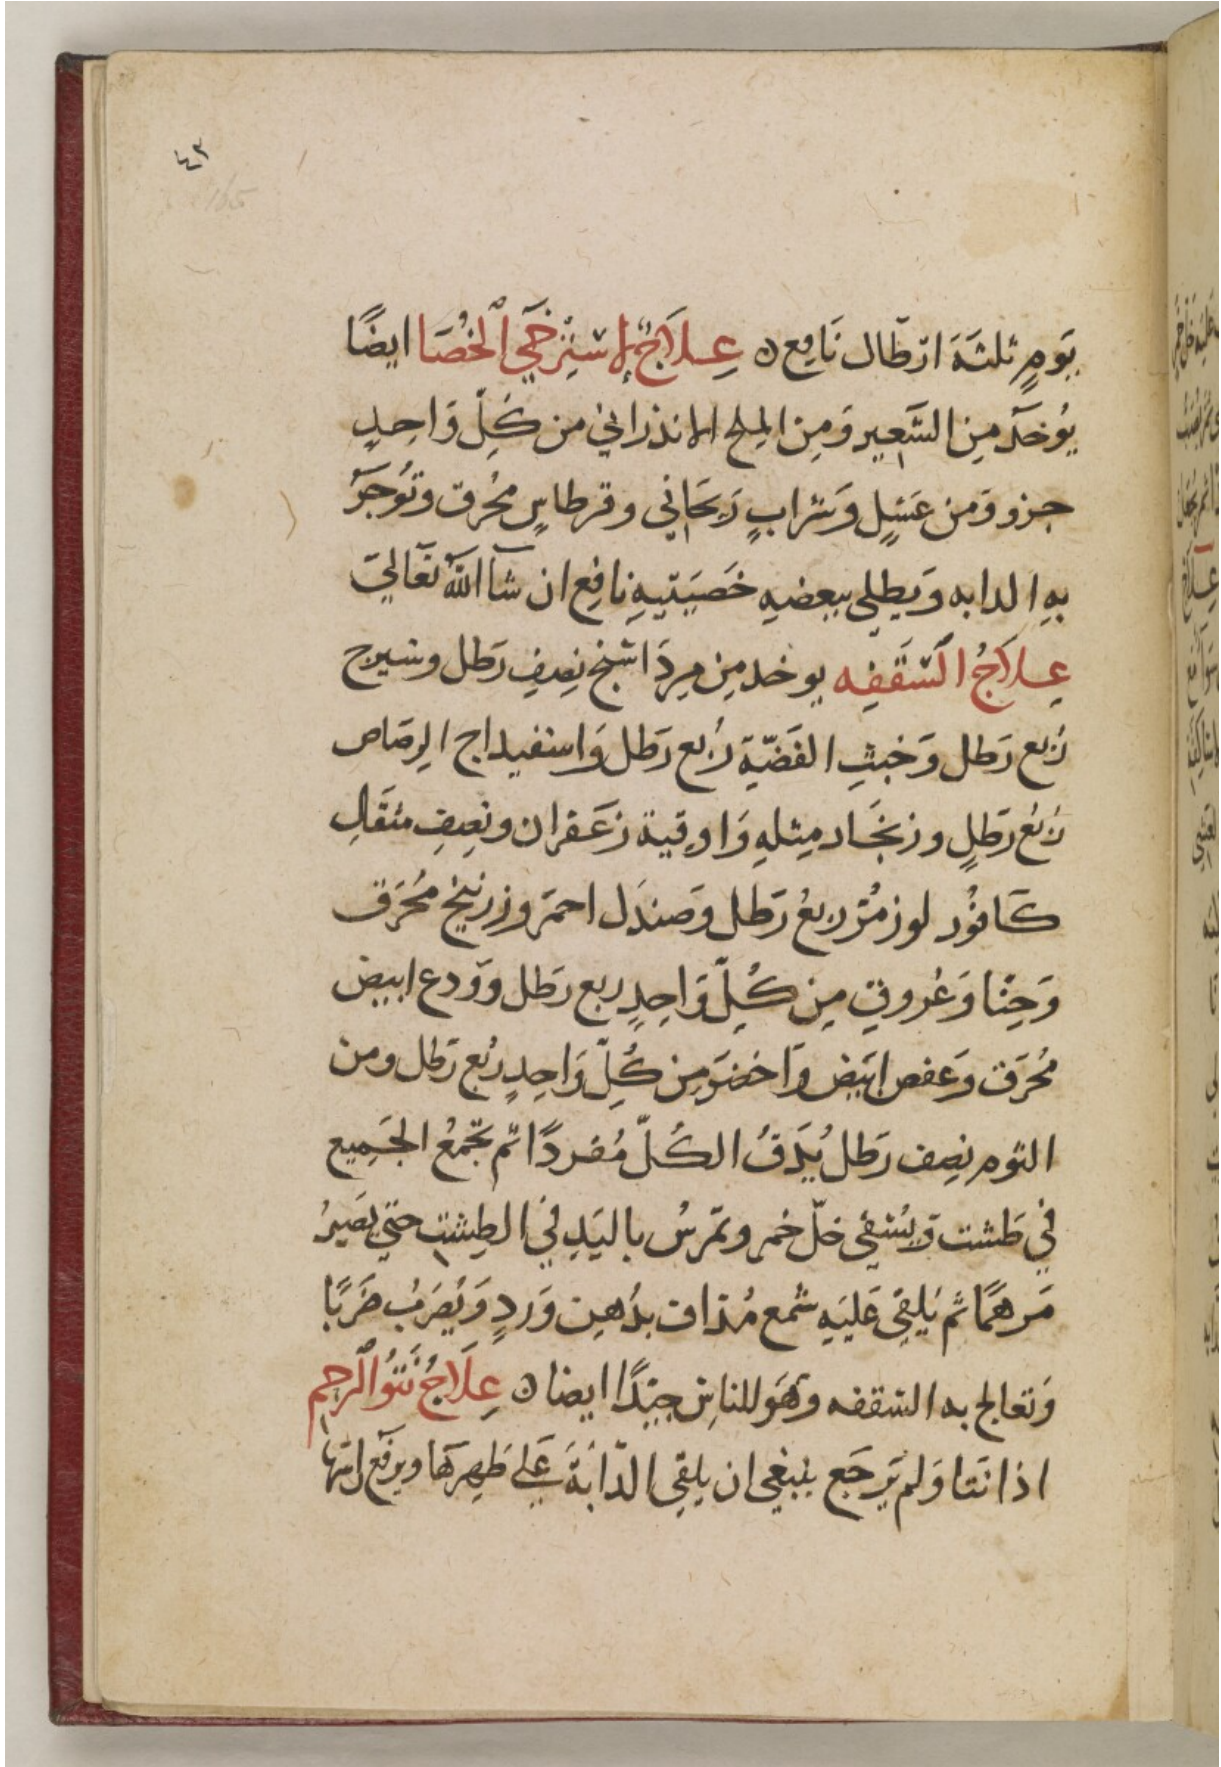 ٤٣
يَومٍ ثلثَةَ ارطال نَافِع ن عِلَاجٌ لاسْتِرْخَي الخُصَا ايضًا
يُوخَذ مِن الشَّعِير وَمِن المِلح الاندَراني من كُلّ وَاحِدٍ
جزو وَمن عَسَلٍ وَشَرابٍ رَيحَاني وقرطاسٍ مُحُرق وتُوجَرُ
بِهِ الدابه وَيطلي ببعضِهِ خَصَيَتيهِ نافِع ان شآ اللّه تعَالي
عِلاَجُ الشَقَفِه يوخد مِن مِردَاسَنج نِصِفِ رَطل وشيرج
رُبع رَطل وَخبثِ الفَضّةِ رُبع رَطل وَاسفيداج الرِصَاص
رُبعُ رَطلٍ وزنجَار مِثلهِ وَاوقية زعَفران ونصِفِ مثقَالِ
كَافوُر لوز مُرّ ربعُ رَطل وَصَندَل احمَر وزرنيخ مُحُرَق
وَحِنّا وَعُروقٍ مِن كُلِّ وَاحِدٍ ربع رَطل وَودع ابيض
مُحُرَق وَعفص ابَيَض وَاخضَر مِن كُلِّ وَاحِدٍ رُبع رَطل ومن
التوم نصِف رَطل يُدَقُ الكُلّ مُفردًا ثم تجمعُ الجَمِيع
في طَشت وَيُسْقي خلّ خمر وتمرسُ باليَدِ في الطِشتِ حتي يَصَيرُ
مَرهَمًا ثم يُلقِي عَليَهِ شمع مُذاف بدُهِن وَردٍ وَيُضرَبُ ضَربًا
وَتعالج به الشقفه وهَو للناسِ جيّدًا ايضا ن عِلَاجُ نُتُو الرحِم
اذا نَتا وَلم يَرجَع ينبغي ان يلقي الدّابَةَ عَلي ظَهِرهَا ويرفع راسَها